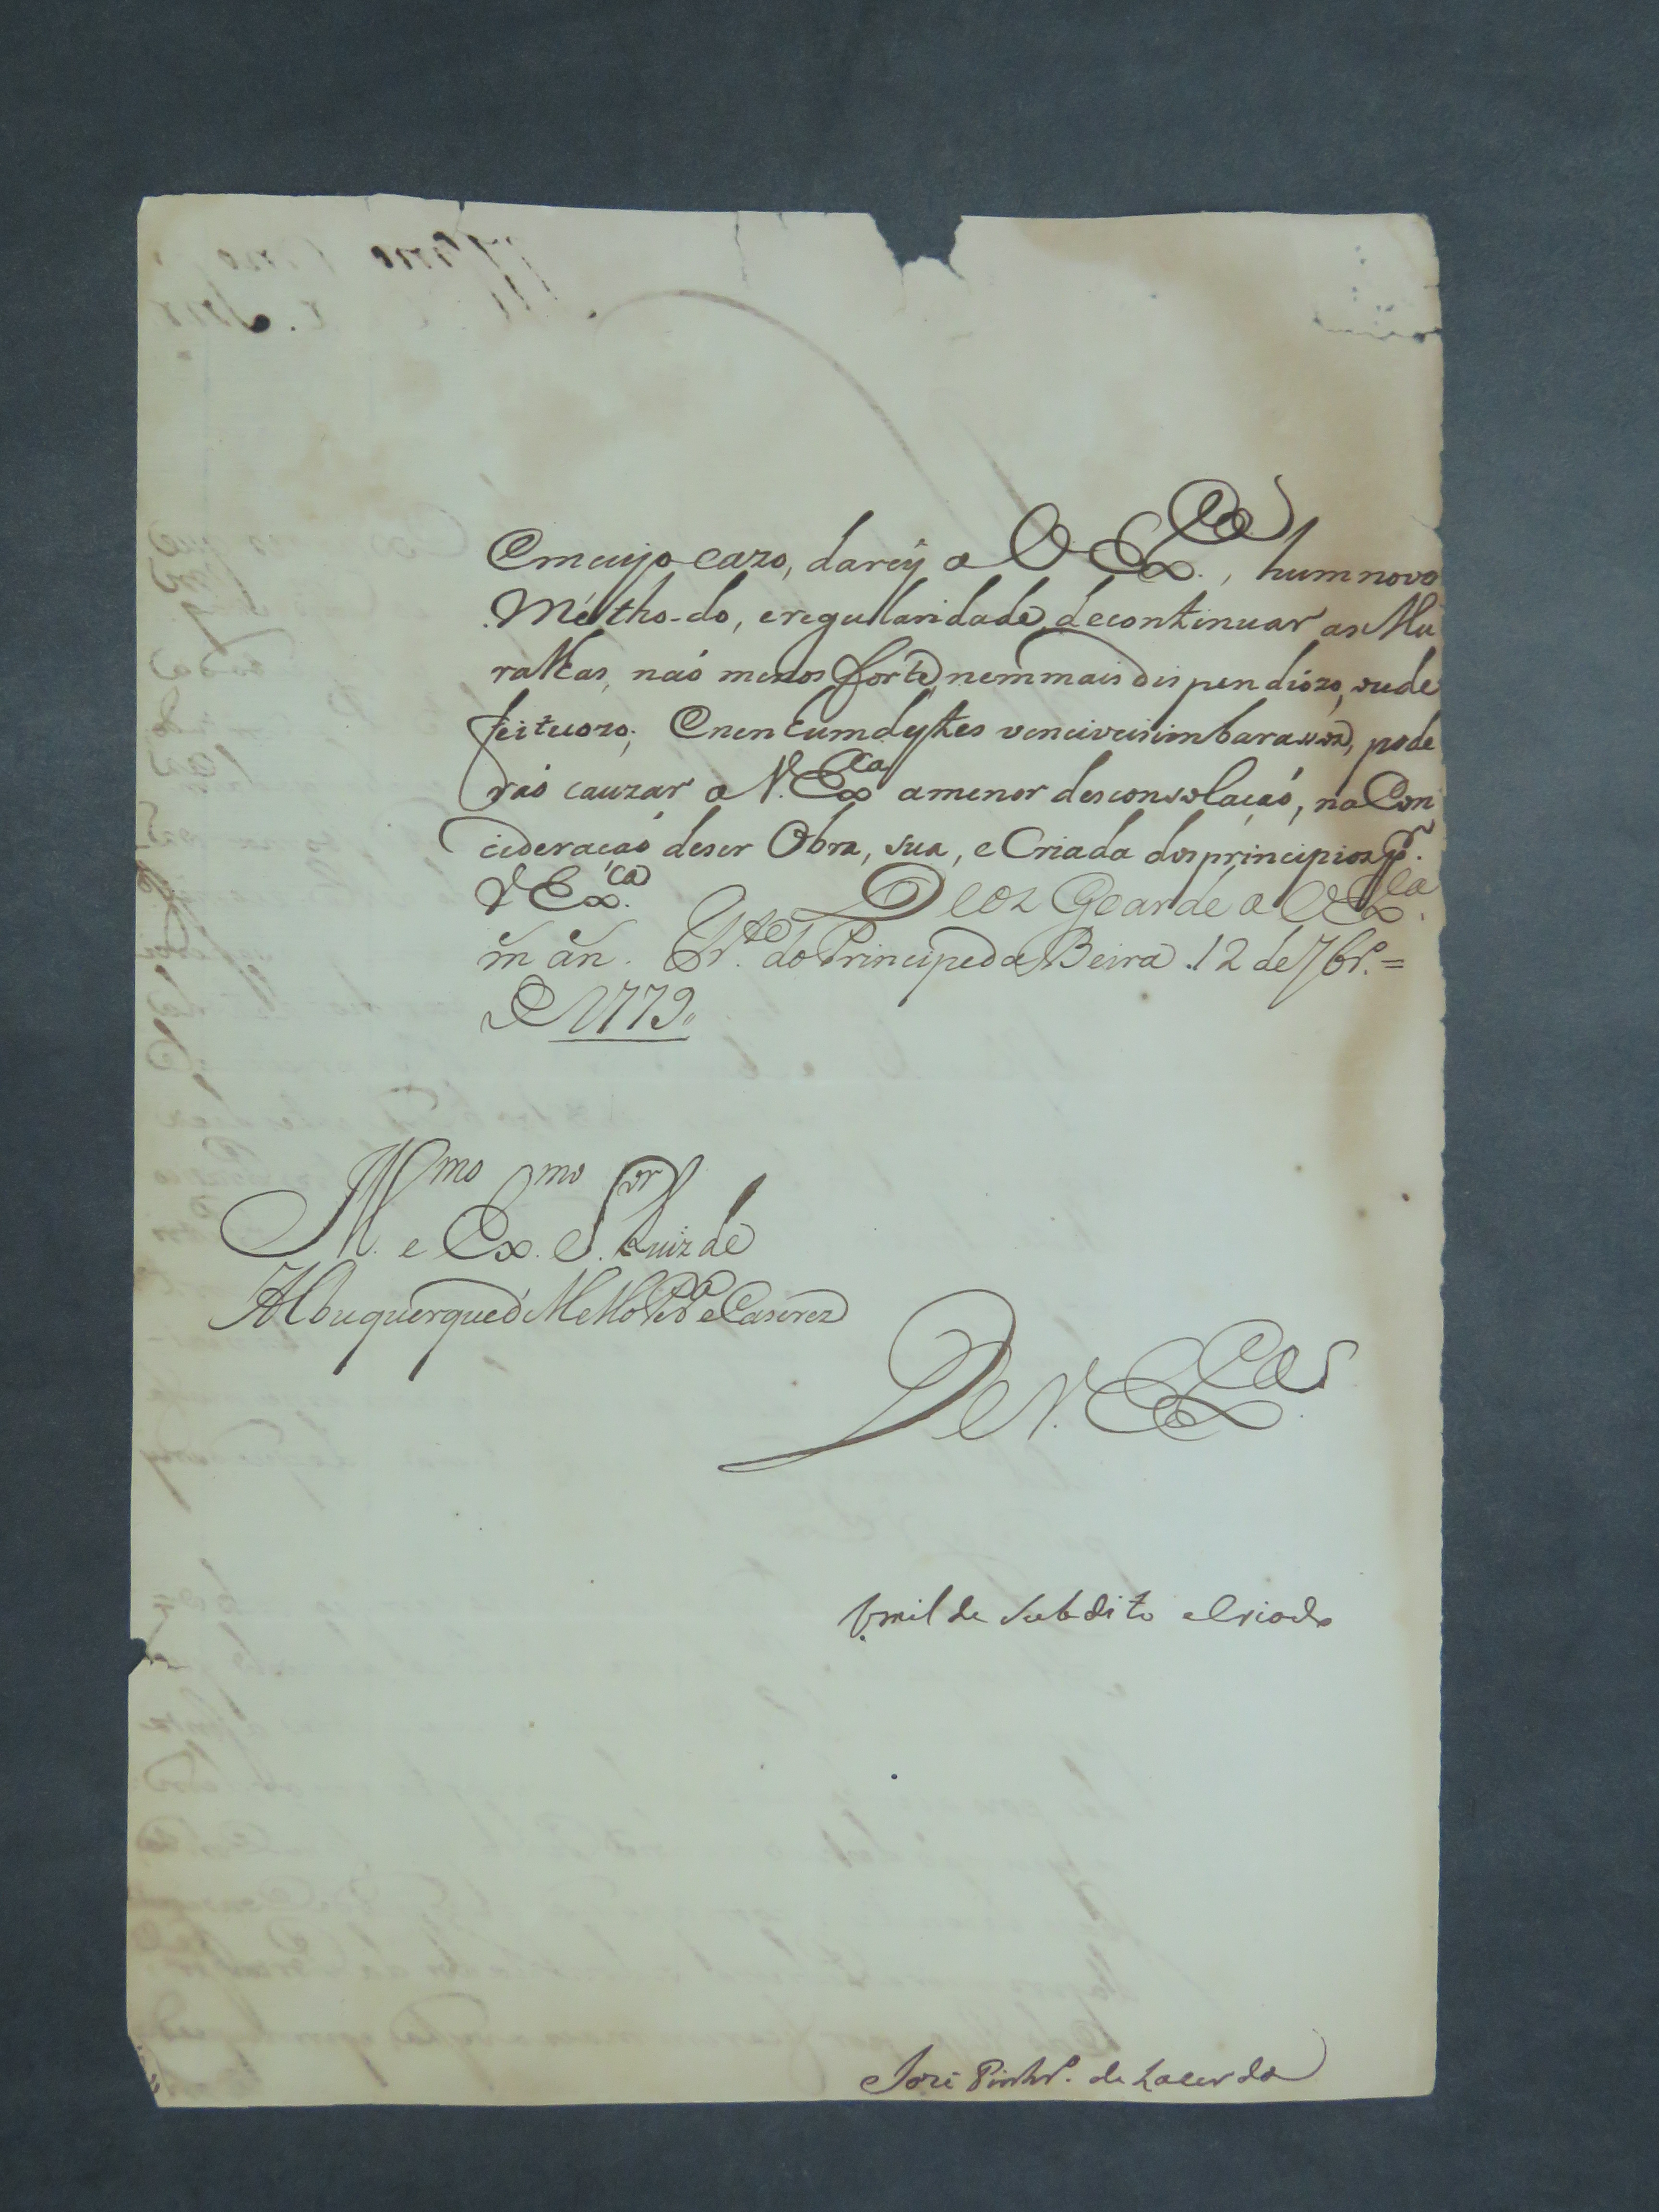 Em cujo cazo, darey a V Ex.ca, hum novo
Méltho-do, e regullaridade, de continuar as Mu
ralhas, naó menos fórte, nem mais dispendiózo, ou de
feituozo; E nenhum destes venciveis imbarassos, pode
ráó cauzar a V. Exca a menor desconsolaçaó, na Con
cideraçaó de ser Obra, sua, e Criada dos principios p.r
V Ex.ca Deoz Goarde a V Ex.ca
m an. Fr.te do Principe da Beira .12 de 7br.=
De 1779.
Ill.mo e Ex.mo S.or Luiz de
Albuquerque d' Mello Per.a e Caserez
De V. Ex.cas
Umilde Subdito e Criado
José Pinhr.o de Lacerda